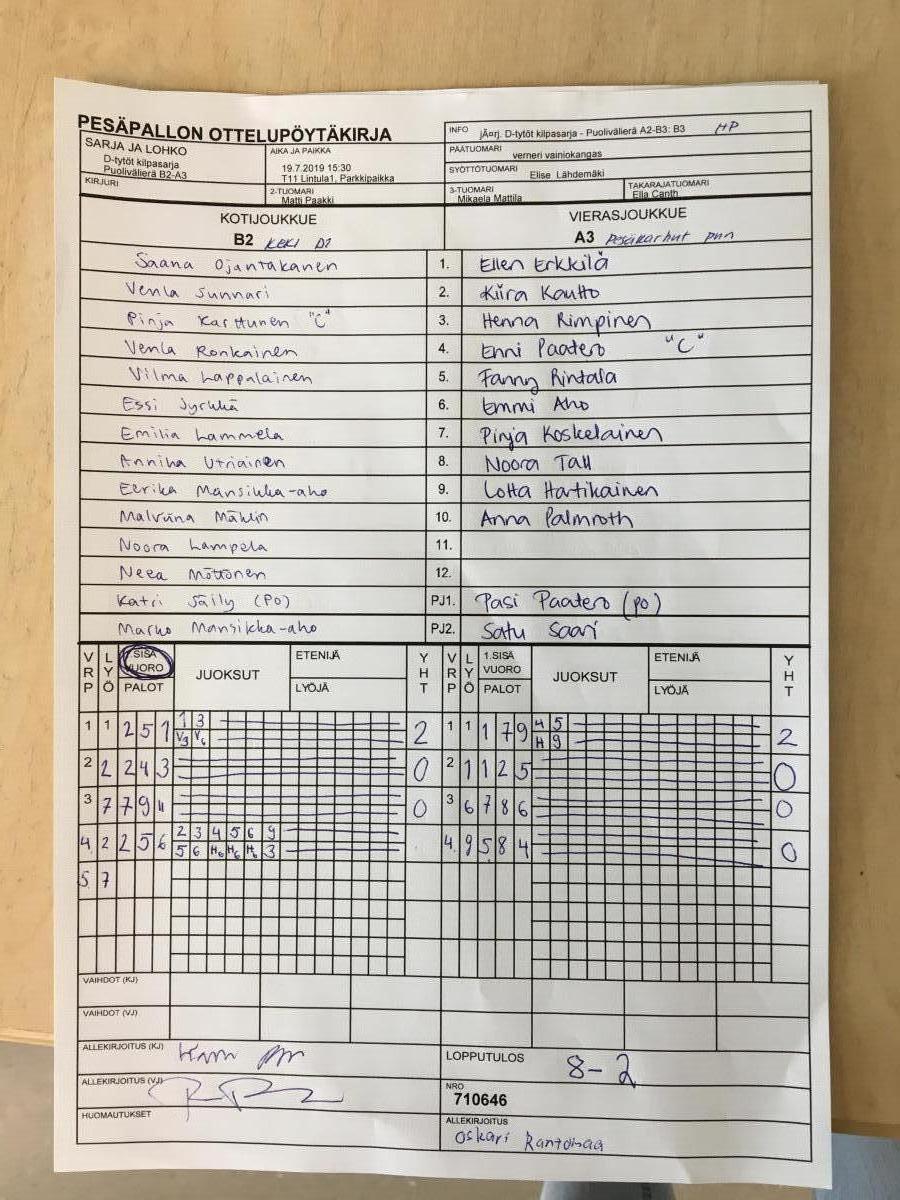 PESÄPALLON OTTELUPÖYTÄKIRJA
INFO jÃ¤rj. D-tytöt kilpasarja - Puolivälierä A2-B3: B3 HP
SARJA JA LOHKO
D-tytöt kilpasarja
Puolivälierä B2-A3
AIKA JA PAIKKA
19.7.2019 15:30
T11 Lintula1, Parkkipaikka
PÄÄTUOMARI verneri vainiokangas
SYÖTTÖTUOMARI Elise Lähdemäki
KIRJURI
2-TUOMARI Matti Paakki
3-TUOMARI Mikaela Mattila
TAKARAJATUOMARI Ella Canth
KOTIJOUKKUE VIERASJOUKKUE
B2 KeKi D1 A3 Pesäkarhut pun
Saana Ojantakanen 1. Ellen Erkkilä
Venla Sunnari 2. Kiira Kautto
Pinja Karttunen "C" 3. Henna Rimpinen
Venla Ronkainen 4. Enni Paatero "C"
Vilma Lappalainen 5. Fanny Rintala
Essi Jyrkkä 6. Emmi Aho
Emilia Lammela 7. Pinja Koskelainen
Annika Utriainen 8. Noora Tall
Eerika Mansikka-aho 9. Lotta Hartikainen
Malviina Mählin 10. Anna Palmroth
Noora Lampela 11.
Neea Möttönen 12.
Katri Jäily (PO) PJ1. Pasi Paatero (po)
Marko Mansikka-aho PJ2. Satu Saari
VRP LYÖ SISÄ VUORO PALOT JUOKSUT ETENIJÄ LYÖJÄ YHT VRP LYÖ 1.SISÄ VUORO PALOT JUOKSUT ETENIJÄ LYÖJÄ YHT
1 1 2 5 1 1 3 2 1 1 1 7 9 H 5 2
V3 V6 H 9
2 2 2 4 3 0 2 1 1 2 5 0
3 7 7 9 4 0 3 6 7 8 6 0
4 2 2 5 6 2 3 4 5 6 9 4. 9 5 8 4 0
5 6 H6 H6 H6 3
5 7
VAIHDOT (KJ)
VAIHDOT (VJ)
ALLEKIRJOITUS (KJ)
LOPPUTULOS 8-2
ALLEKIRJOITUS (VJ)
NRO
710646
HUOMAUTUKSET
ALLEKIRJOITUS
Oskari